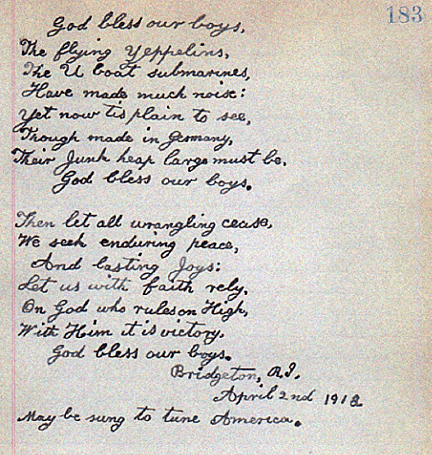 183
God bless our boys,
The flying Yeppelins,
The U boat submarines,
Have made much noise:
Yet now tis plain to see,
Though made in Germany,
Their Junk heap large must be.
God bless our boys.
Then let all wrangling cease,
We seek enduring peace,
And lasting Joys:
Let us with faith rely,
On God who rules on High,
With Him it is victory.
God bless our boys.
Bridgeton, R.I.
April 2nd 1918
May be sung to tune America.